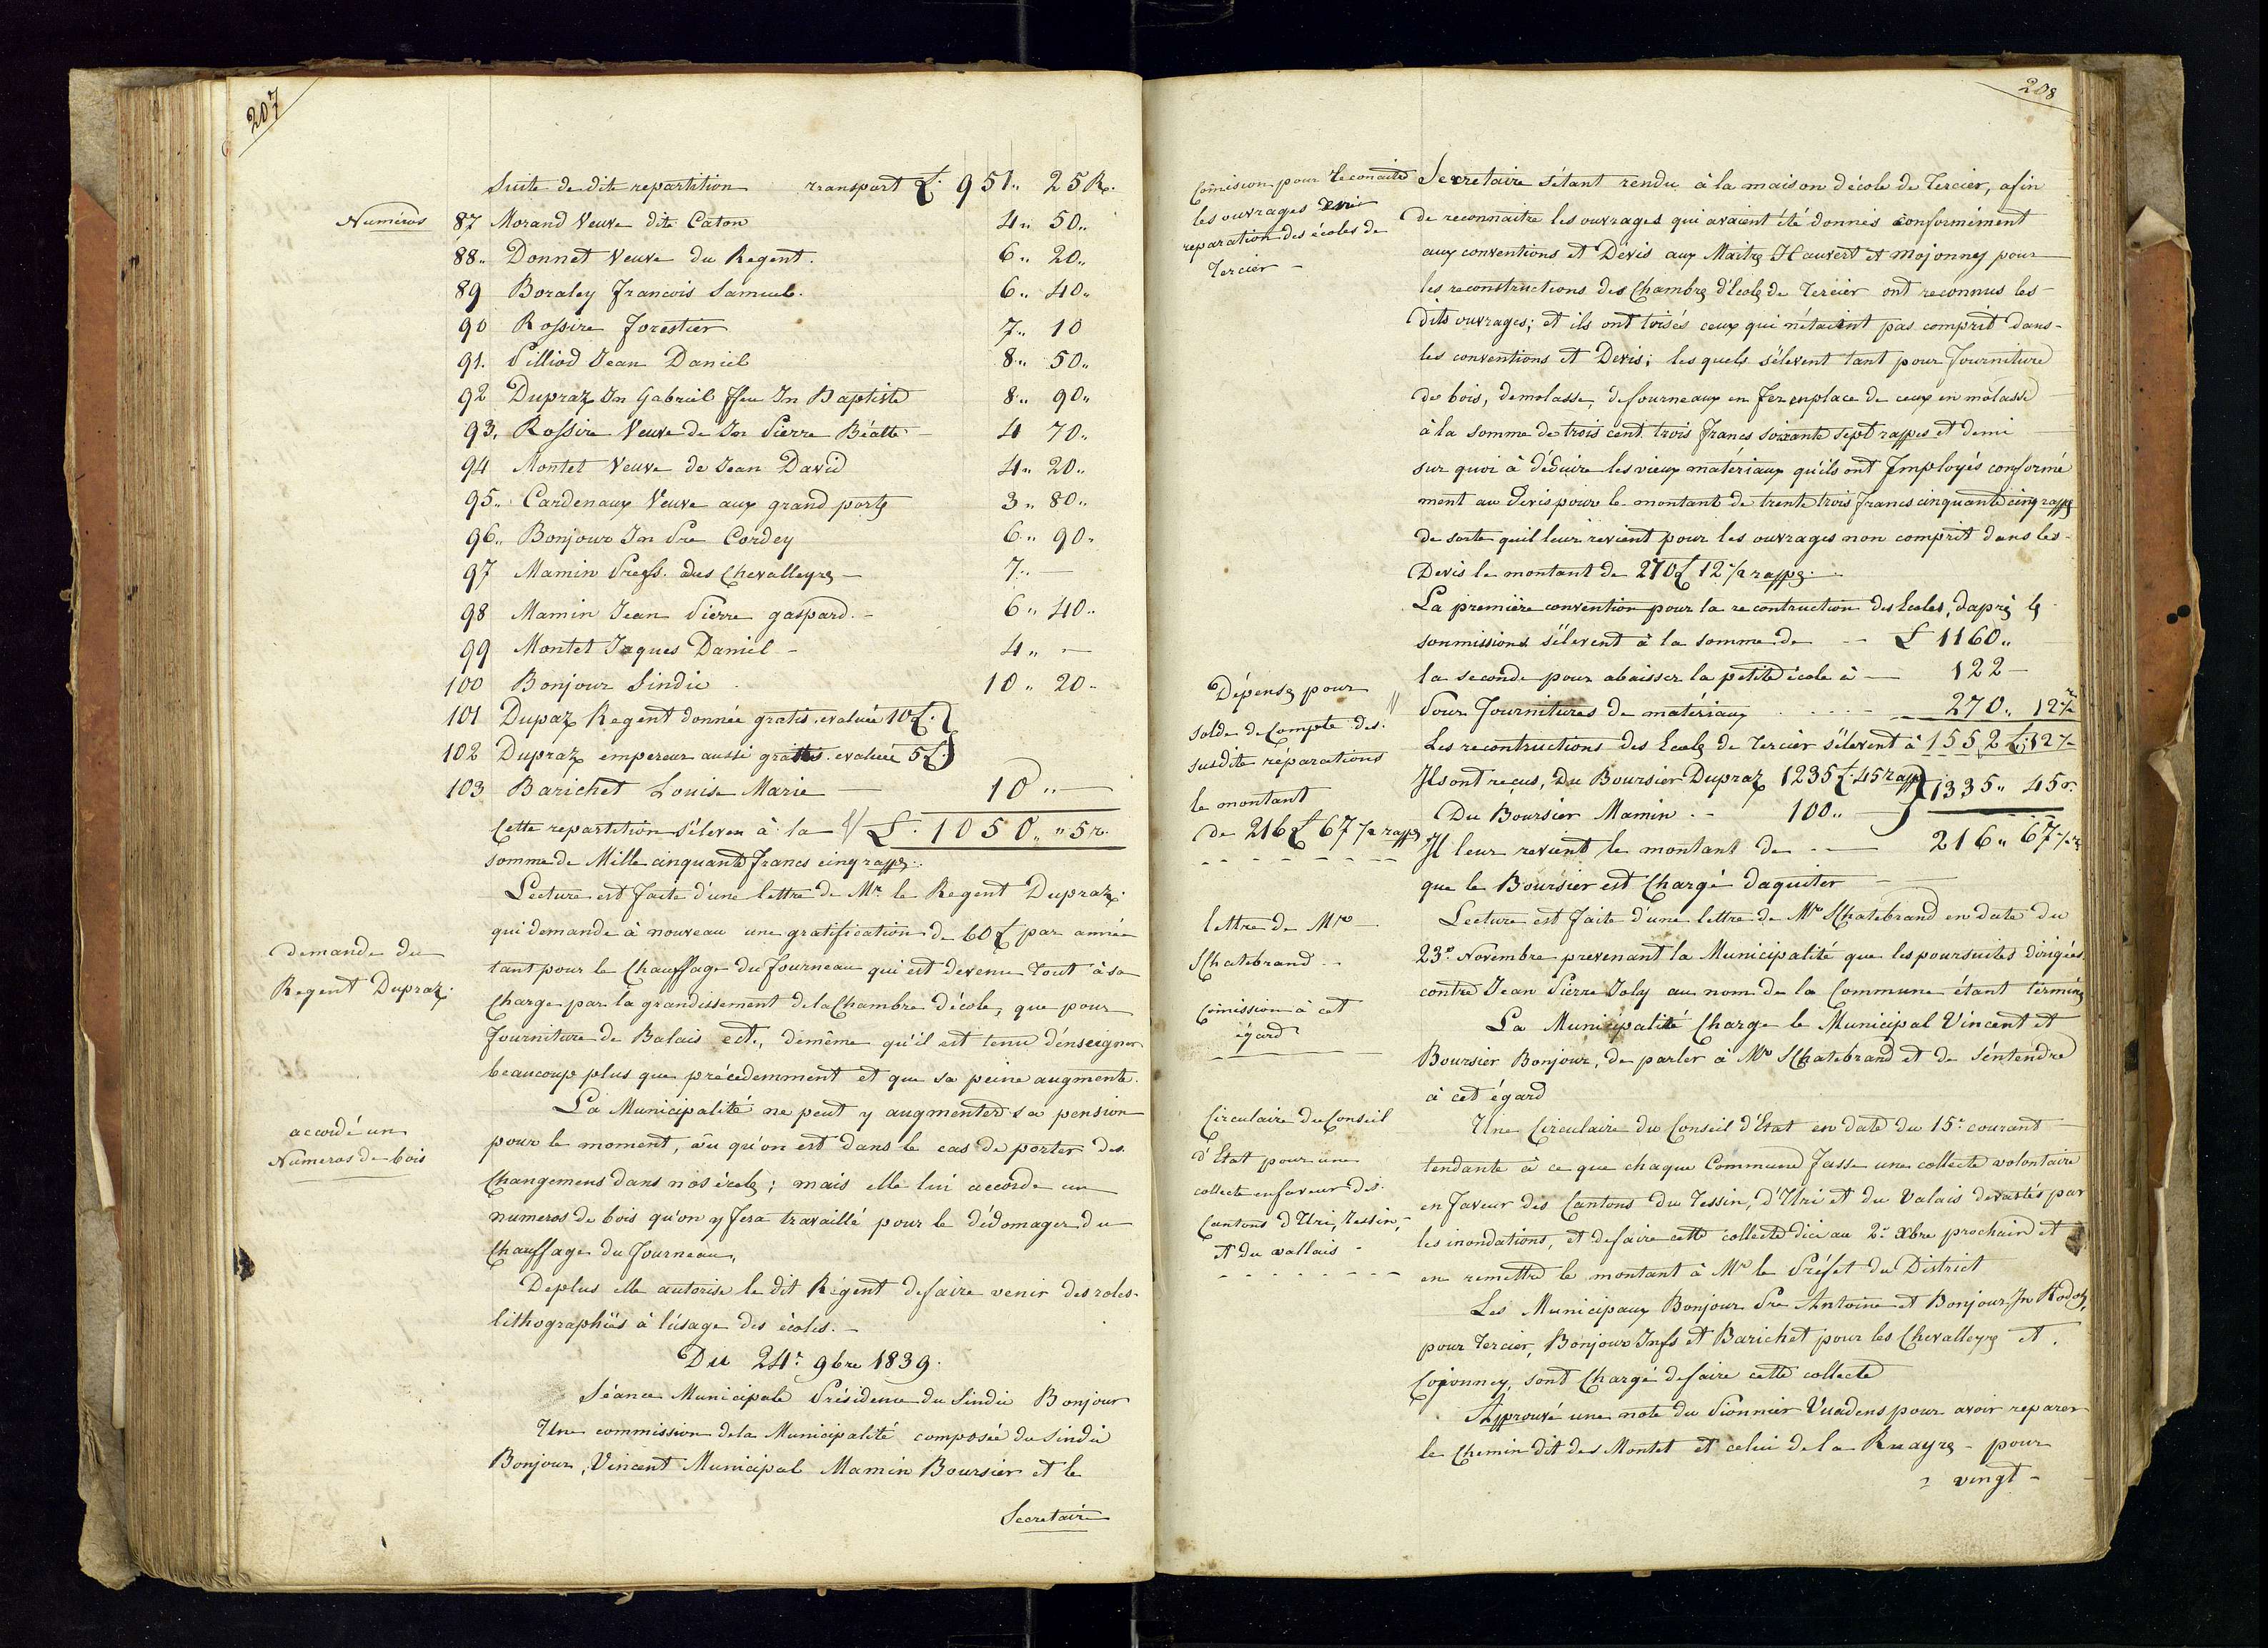 207
Suite de dite repartition transport £. 951.. 25 Rp.
Numéros 87 Morand Veuve dite Caton 4.. 50..
88.. Donnet Veuve du Regent. 6.. 20..
89 Boraley francois Samuel. 6.. 40..
90 Rossire forestier 7.. 10
91. Pilliod Jean Daniel 8.. 50..
92 Dupraz Jn Gabriel ffeu Jn Baptiste 8.. 90..
93. Rossire Veuve de Jn Pierre Béatte 4 70..
94 Montet Veuve de Jean David 4.. 20..
95.. Cardenaux Veuve aux grand portes 3.. 80..
96.. Bonjour Jn Pre Cordey 6.. 90..
97 Mamin Preffs. aus Chevalleyres — 7.. —
98 Mamin Jean Pierre gaspard. - 6.. 40..
99 Montet Jaques Daniel - 4.. —
100 Bonjour Sindic 10.. 20..
101 Dupaz Regent donnée gratis. evaluée 10£.
102 Dupraz empereur aussi gratis. evaluée 5£.
103 Barichet Louise Marie — 10.. —
Cette repartition s'éleven à la £. 1050.. " 5 r.
somme de Mille cinquante francs cinq rappes..
Lecture est faite d'une lettre de Mr. le Regent Dupraz.
qui demande à nouveau une gratification de 60£ par année
demande du
Regent Dupraz.
tant pour le Chauffage du fourneau qui est devenu tout à sa
Charge par la grandissement de la Chambre d'école, que pour
fourniture de Balais ect., demême qu'il est tenu d'énseigner
beaucoup plus que précédemment et que sa peine augmente.
La Municipalité ne peut y augmenter sa pension
accordé un
Numeros de bois
pour le moment, vu qu'on est dans le cas de porter des
Changemens dans nos écoles ; mais elle lui accorde un
numeros de bois qu'on y fera travaillé pour le dédomager du
Chauffage du fourneau,
Deplus elle autorise le dit Régent de faire venir des roles
lithographiés à l'úsage des écoles. —
Du 24e. 9bre 1839.
Séance Municipale Présidence du Sindic Bonjour
Une commission dela Municipalité composée du Sindic
Bonjour, Vincent Municipal Mamin Boursier et le
Secretaire
208
Comission pour reconaitre
les ouvrages
reparation des écoles de
Tercier -
Secretaire s'étant rendu à la maison d'école de Tercier, afin
de reconnaitre les ouvrages qui avaient été donnés conformément
aux conventions et Dévis aux Maitres Hauvert et Mojonney pour
les reconstructions des Chambres d'Ecole de Tercier ont reconnus les
dits ouvrages; et ils ont toisés ceux qui n'étaient pas comprit dans
les conventions et Devis; les quels s'élevent tant pour fourniture
de bois, de molasse, de fourneaux en fer en place de ceux en molasse
à la somme de trois cent trois francs soixante sept rappes et demi
sur quoi à déduire les vieux matériaux qu'ils ont Employés conformé
ment au Devis pour le montant de trente trois francs cinquante cinq rappes
de sorte qu'il leur revient pour les ouvrages non comprit dans les
Devis le montant de 270£ 12 1/2 rappes.
La première convention pour la recontruction des Ecoles, daprès les
soumissions s'élevent à la somme de — £ 1160..
la seconde pour abaisser la petite école à — 122 —
Dépenses pour
solde de Compte des
susdite réparations
le montant
de 216£ 67 1/2 rappes
Pour fournitures de matériaux 270.. 12 1/2
Les recontructions des Ecoles de Tercier s'élevent à 1552£. 12 1/2
Ils ont reçus, Du Boursier Dupraz 1235£. 45 rapp 1335.. 45 r.
Du Boursier Mamin. - 100.. —
Il leur revient le montant de — 216.. 67 1/2
que le Boursier est Chargé daquiter —
lettre de Mr
SChatebrand
Comission à cet
égard
Lecture est faite d'une lettre de Mr SChatebrand en date du
23e. Novembre prevenant la Municipalité que les poursuites dirigées
contre Jean Pierre Joly au nom de la Commune étant terminés
La Municipalité Charge le Municipal Vincent et
Boursier Bonjour, de parler à Mr SChatebrand et de s'éntendre
à cet égard
Circulaire du Conseil
d'Etat pour une
collecte en faveur des
Cantons d'Uri, Tessin,
et du vallais -
Une Circulaire du Conseil d'Etat en date du 15e. courant
tendante à ce que chaque Commune fasse une collecte volontaire
en faveur des Cantons du Tessin, d'Uri et du Valais devastés par
les inondations, et de faire cette collecte dici au 2e. Xbre prochain et
en remettre le montant à Mr le Préfet du District
Les Municipaux Bonjour Pre Antoine et Bonjour Jn Rodolp,
pour Tercier, Bonjour Jnfs et Barichet pour les Chevalleyres et
Cojonney, sont Chargé de faire cette collecte
Approuvé une note du Pionnier Vuadens pour avoir reparer
le Chemin dit des Montet et celui de la Ruayres - pour
vingt -